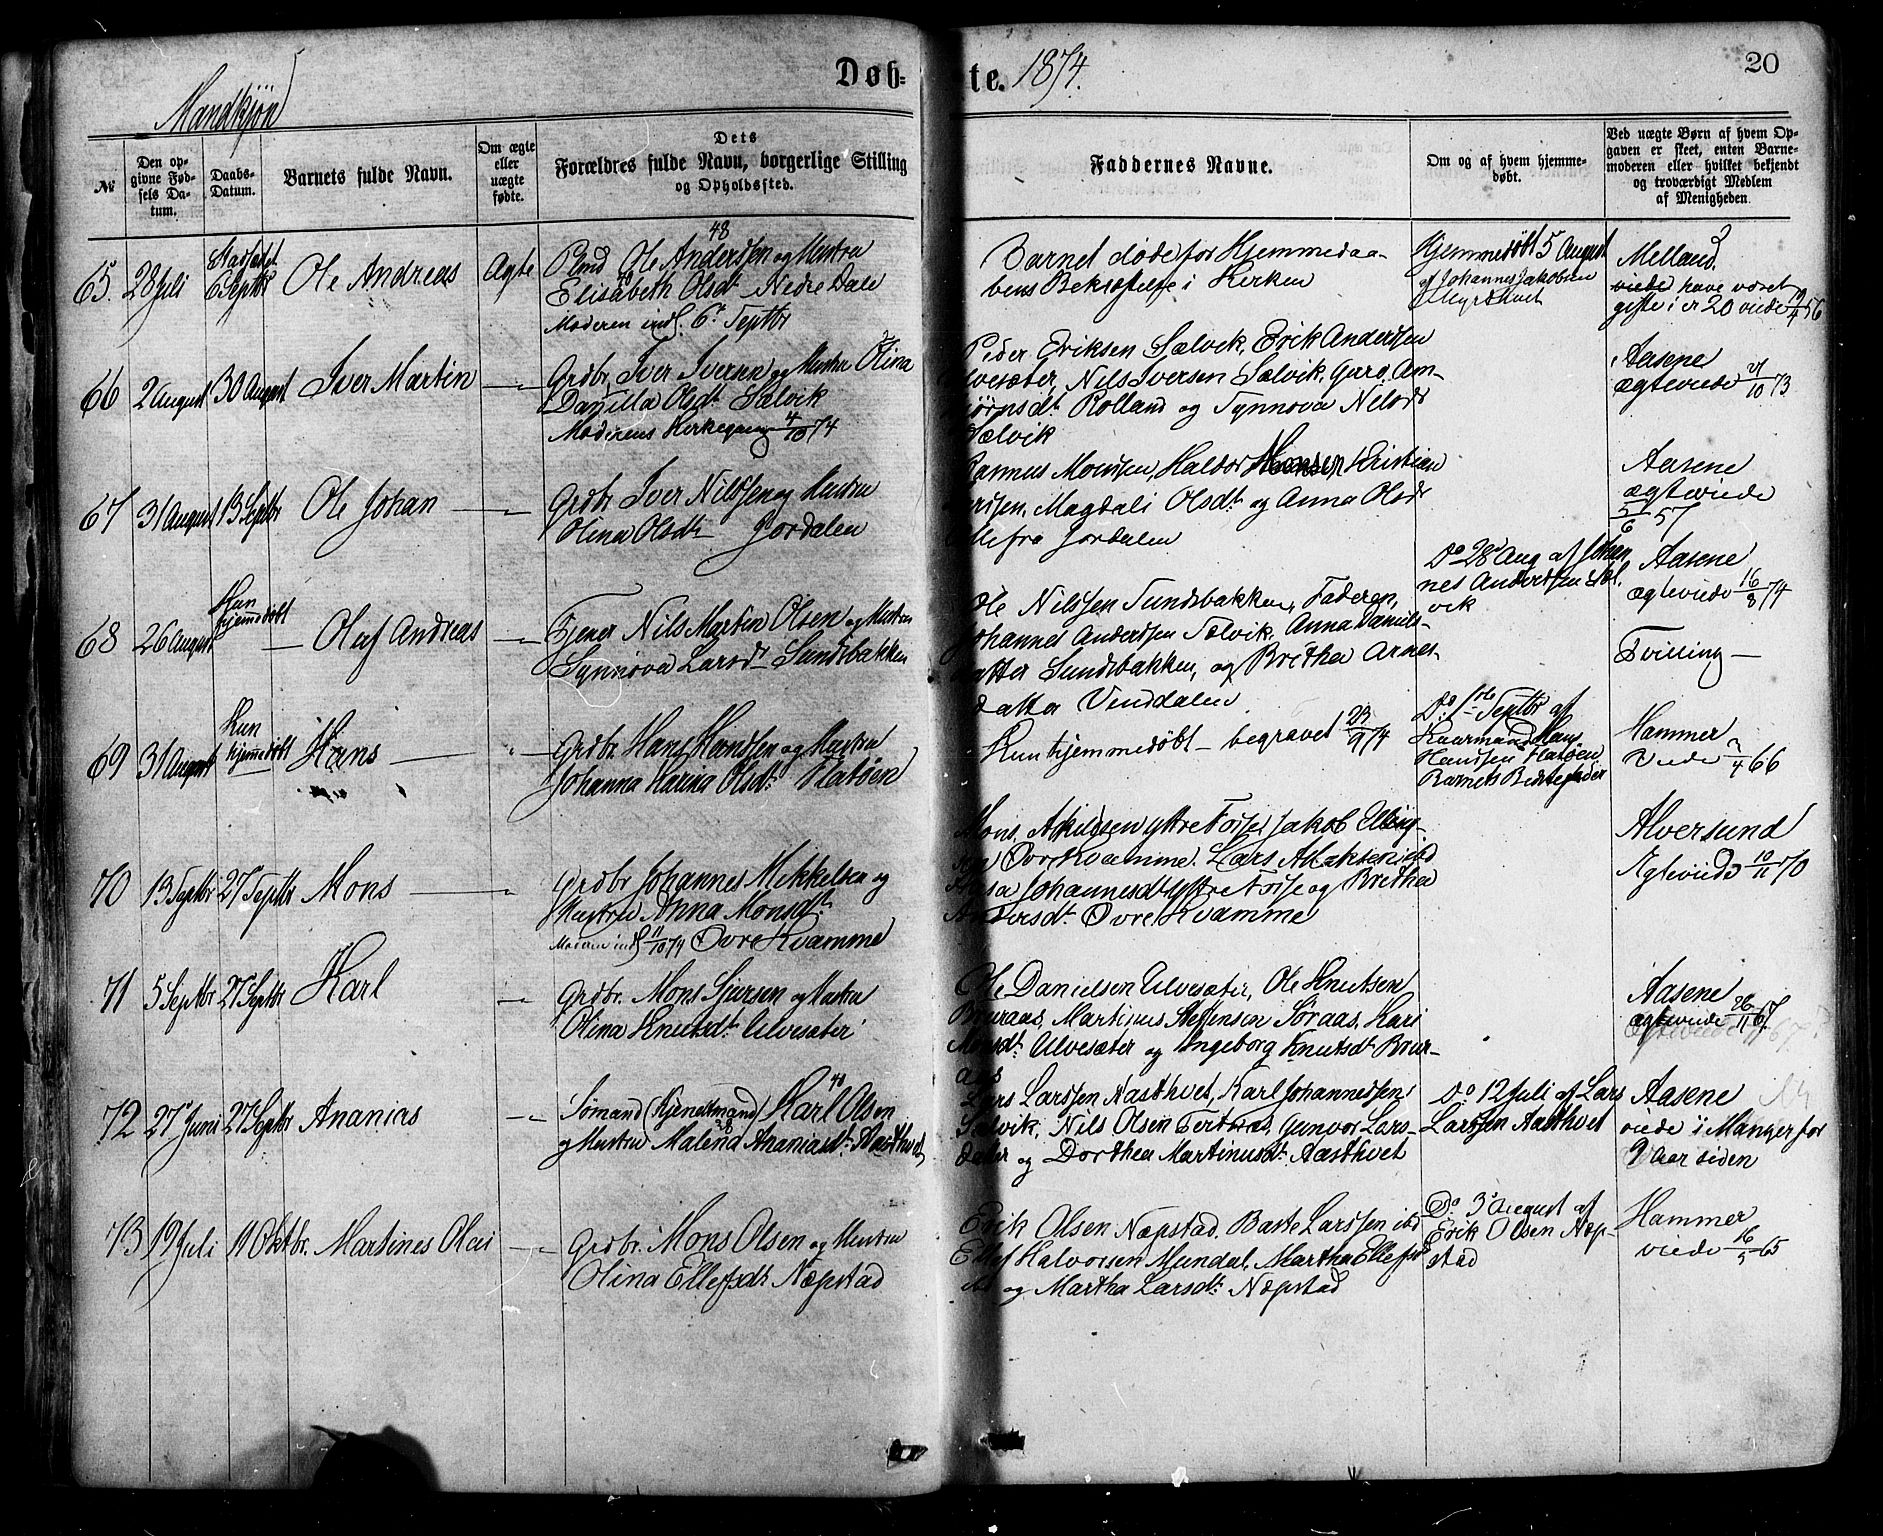 Døbte. 1874.
20
Mandkjøn
№
Den opgivne Fødsels Datum.
Daabs-Datum.
Barnets fulde Navn.
Om ægte eller uægte fødte.
Dets Forældres fulde Navn, borgerlige Stilling og Opholdssted.
Faddernes Navne.
Om og af hvem hjemmedøbt.
Ved uægte Børn af hvem Opgaven er skeet, enten Barnemoderen eller hvilket bekjendt og troværdigt Medlem af Menigheden.
65. 28 Juli
Stadfæstet
6 Septbr
Ole Andreas
Ægte
48
Ole Anderssen og Hustru
Elisabeth Olsdt. Nedre Dale
Moderen indl. 6 Septbr
Barnet døde før Hjemmedaa-
bens Bekræftelse i Kirken
Hjemmedøbt 5 August
af Johannes Jakobsen
Myrthvet
Melland.
viede have været
gifte i 20 viede 19/4 56
66 2 August 30 August Iver Martin
Grdbr. Iver Iversen og Hustru Olina
Danilla Olsdt. Sælvik
Moderens Kirkegang 4/10 74
Peder Eriksen Sælvik, Erik Anderssen
Ulvesæter, Nils Iversen Sælvik, Guro Am-
Rolland og Synnøva Nilsdt
Sælvik
Aasene
ægteviede 21/10 73
67 31 August 13 Septbr Ole Johan
Grdbr Iver Nilssen og Hustru
Olina Olsdt. Jordalen
Rasmus Monssen, Haldor Monsen, Kristian
Magdali Olsdt. og Anna Olsdt
Alle fra Jordalen
Aasene
ægteviede
5/6 57
68 26 August
Kun hjemmedøbt
Olaf Andreas
Tjener Nils Martin Olsen og Hustru
Synnøva Larsdt. Sundsbakken
Ole Nilssen Sundsbakken, Faderen,
Johannes Anderssen Sælvik, Anna Daniels-
datter Sundsbakken, og Britha Arnes-
datter Vinddalen
Do 28 Aug af Johan
nes Anderssen Sæl
vik
Aasene
ægteviede 16/8 74
Tvilling
69 31 August
Kun hjemmedøbt
Hans
Grdbr Hans Hanssen og Hustru
Johanna Hanna Olsdt. Flatøen
Kun hjemmedøbt begravet 23/9 74
Do 1ste Septbr af
Kaarmand Hans
Hanssen Flatøen
Barnets Bestefader
Hammer
Viede 2/4 66
70 13 Septbr 27 Septbr Mons
Grdbr Johannes Mikkelsen og
Hustru Anna Monsdt.
Moderen indl 11/10 74 Øvre Kvamme
Mons Askildsen yttre Fosse, Jakob Elling-
sen Øvre Kvamme, Lars Askildsen ibd
Johannesdt yttre Fosse og Britha
Andersdt. Øvre Kvamme
Alversund
Ægteviede 10/11 70
71 5 Septbr 27 Septbr Karl
Grdbr. Mons Sjursen og Hustru
Olina Knutsdt. Ulvesæter
Ole Danielsen Ulvesæter, Ole Knutsen
Bruraas, Martinus Steffensen Søraas, Kari
Monsdt. Ulvesæter og Ingeborg Knutsdt Brur-
aas
Aasene
ægteviede 26/11 67
72 27 Juni 27 Septbr Ananias
40
Sømand (Kjenettmand) Karl Olsen
38
og Hustru Malena Ananiasdt. Aasthvet
Lars Larssen Aasthvet, Karl Johannessen
Sælvik, Nils Olsen Fertnæs, Gunvor Lars-
datter og Dorthea Martinusdt. Aasthvet
Do 12 Juli af Lars
Larssen Aasthvet
Aasene
viede i Manger for
9 Aar siden
73 19 Juli 11 Oktbr. Martines Olai
Grdbr. Mons Olsen og Hustru
Olina Ellefsdt. Næpstad
Erik Olsen Næpstad, Baste Larssen ibd
Ellef Halvorsen Mundal, Martha Ellefsdt
ibd og Martha Larsdt. Næpstad
Do 3 August af
Erik Olsen Næp-
stad
Hammer
viede 16/5 65